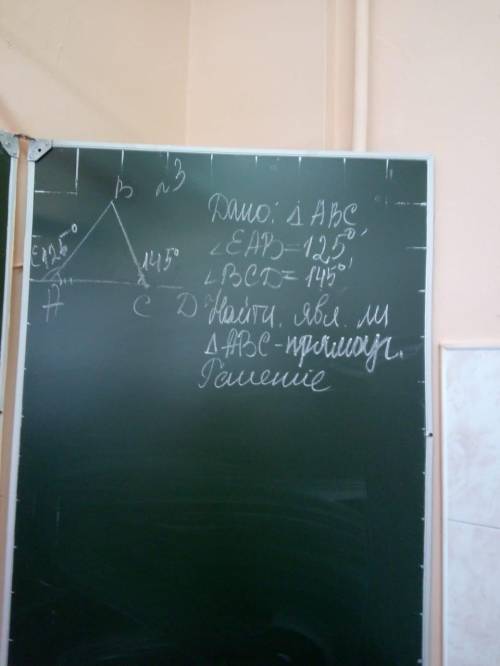 B
№3
E 125°
145°
A
C
D
Дано: △ABC
∠EAB=125°,
∠BCD=145°,
Найти, явл. ли
△ABC-прямоуг.
Решение